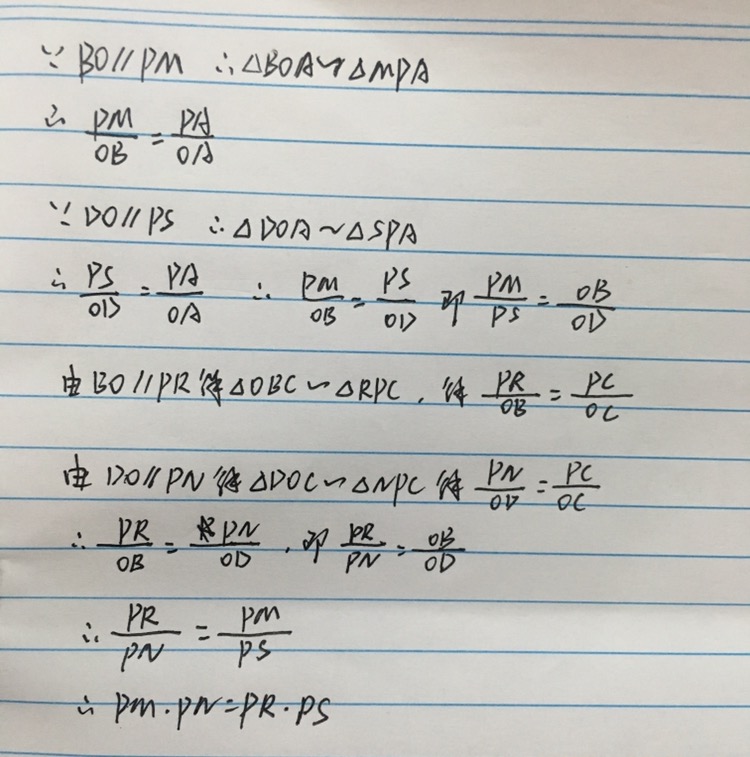 ∵ BO∥PM ∴△BOA∽△MPA
∴ PM/OB = PA/OA
∵ DO∥PS ∴△DOA∼△SPA
∴ PS/OD = PA/OA ∴ PM/OB = PS/OD 即 PM/PS = OB/OD
由BO∥PR得△OBC∽△RPC,得 PR/OB = PC/OC
由DO∥PN得△DOC∽△NPC得 PN/OD = PC/OC
∴ PR/OB = PN/OD,即 PR/PN = OB/OD
∴ PR/PN = PM/PS
∴ PM·PN=PR·PS